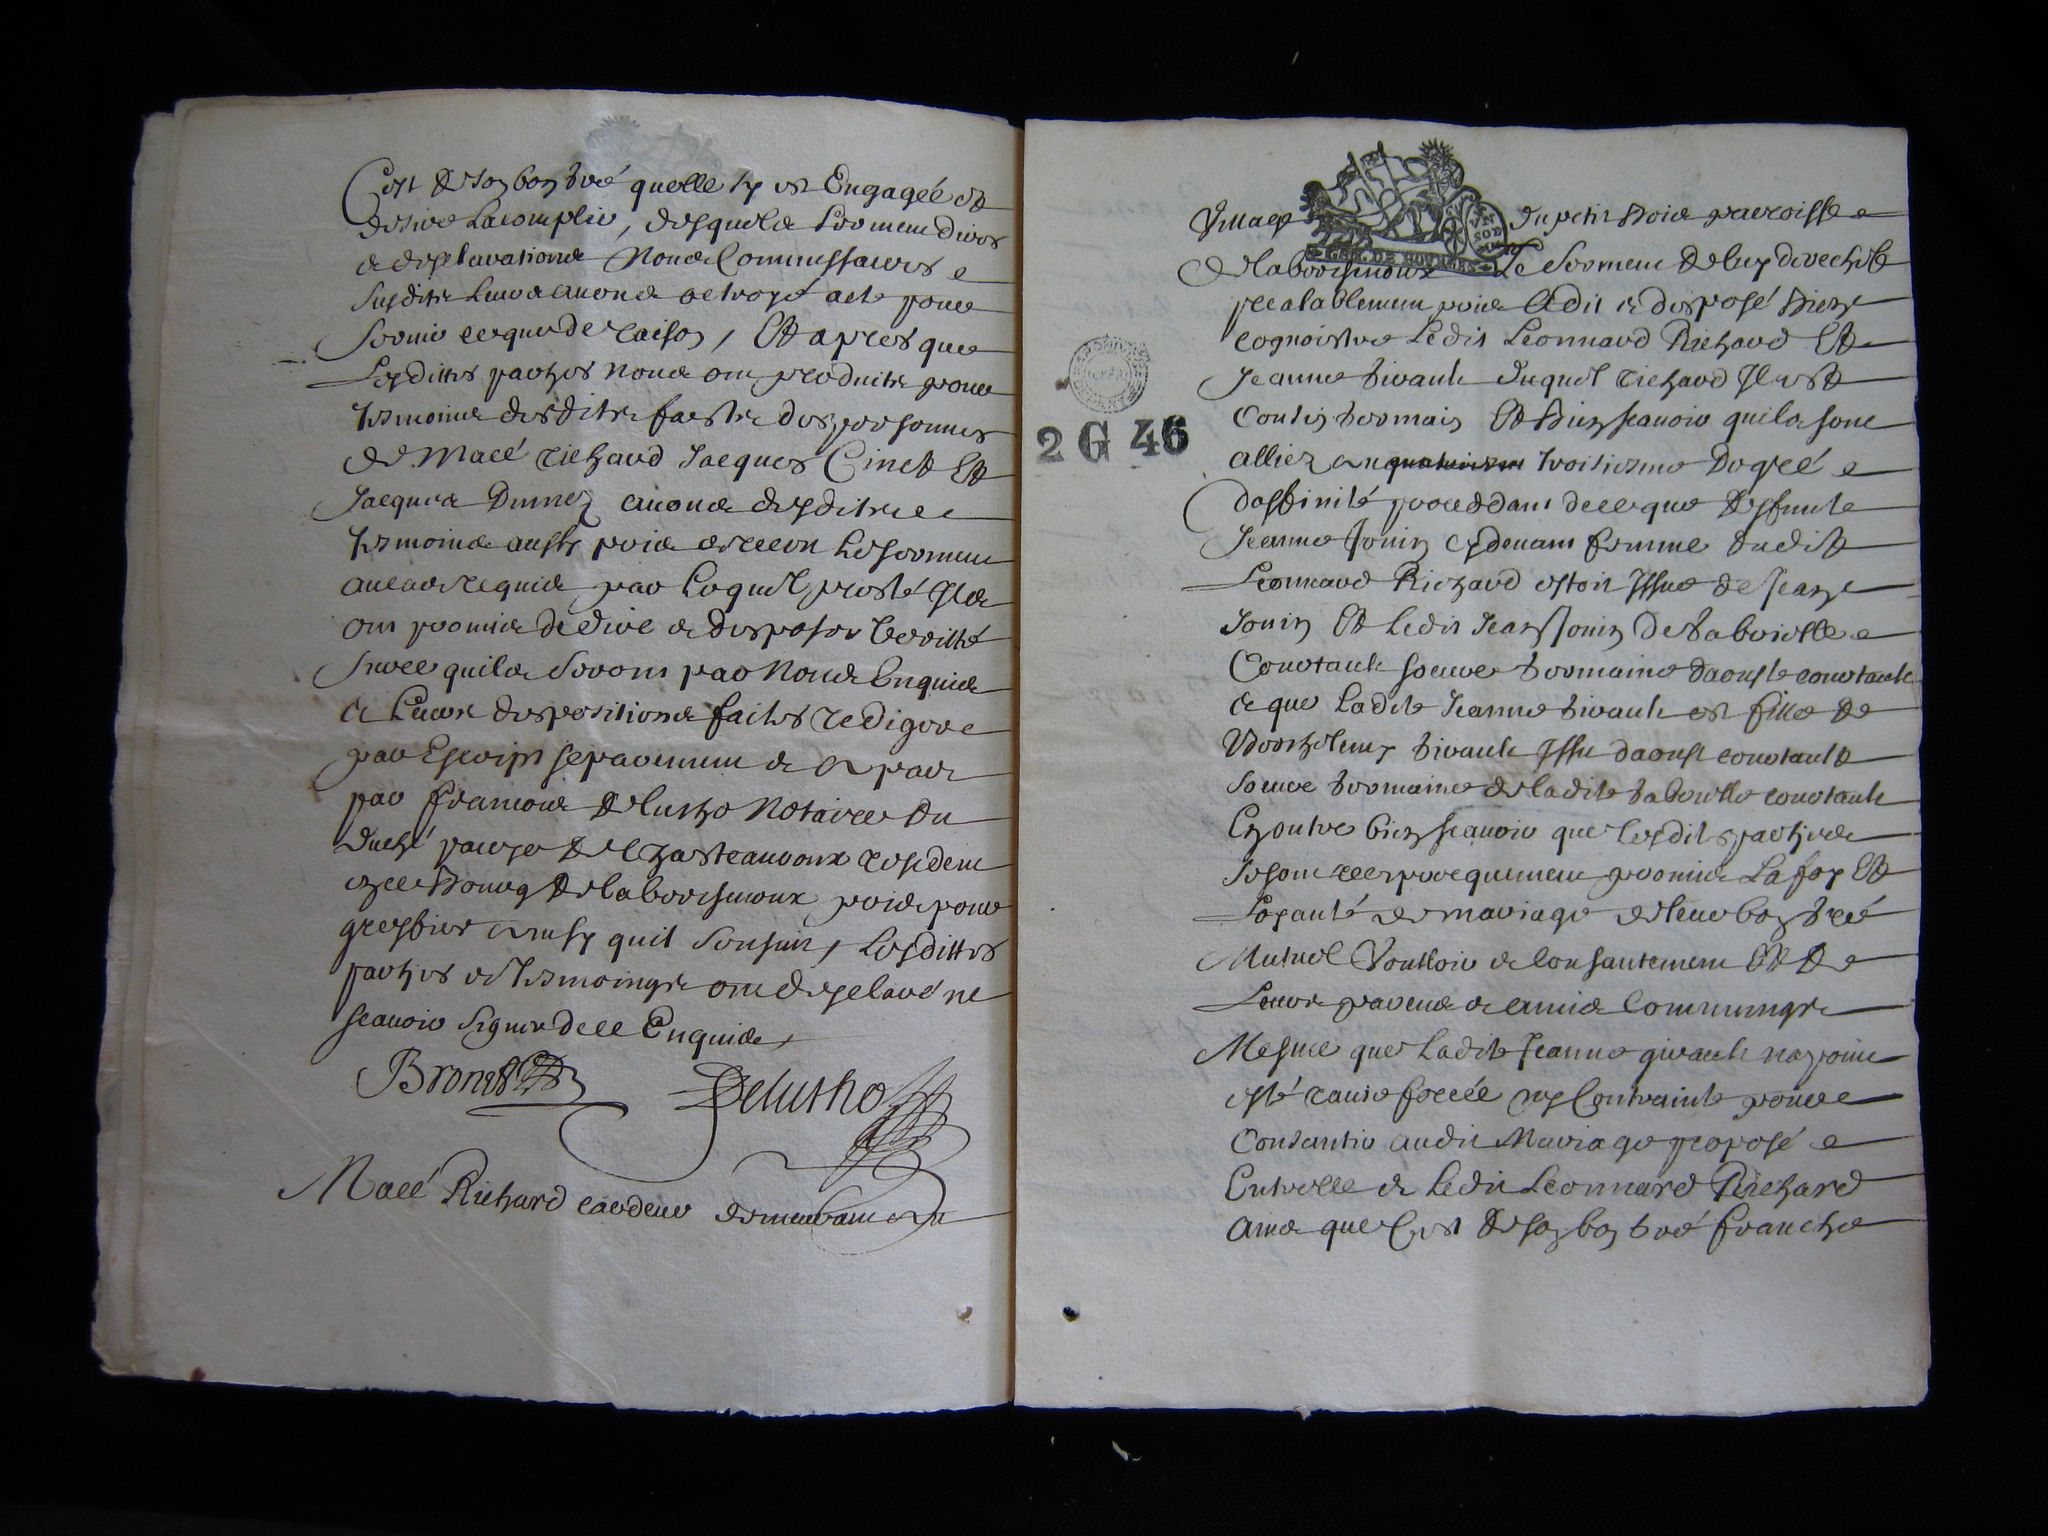 Cest de son bon gré quelle sy est Engagée et
desire Lacomplir, desquels serment dires
& desclarations Nous Commissaires
susdits leurs avons octroyé acte pour
servir ce que de raison, Et apres que
Lesdittes parties nous ont produits pour
tesmoins desdits faicts des personnes
de Macé richard Jacques Cinet Et
Jacques Dumez avons desdits
tesmoins aussy pris & receu le serment
au cas requis par lequel presté Ils
ont promis de dire & desposer veritté
sur ce quils seront par Nous Enquis
& leurs despositions faites redigere
par Escript separement & a part
par francois Delutho Notaire du
duché pairye de Chasteauroux resident
en ce Bourg de labouesmoux pris pour
greffier ainsy quil sensuit, Lesdittes
parties & tesmoings ont desclaré ne
scavoir signer de ce Enquis
Delutho
Macé Richard cardeur demeurant au
Village du petit Bois parroisse
de labouesmoux Le serment de luy de
prealablement pris a dit & desposé Bien
cognoistre Ledit Leonnard Richard Et
Jeanne girault duquel richard Il est
Cousin germain Et Bien scavoir quils sont
alliez au troisiesme Degré
daffinité proceddant de ce que deffunte
Jeanne Jouin cydevant femme dudit
Leonnard Richard estoit Issue de Jean
Jouin Et Ledit Jean Jouin de gabrielle
Courtault soeur germaine
& que Ladite Jeanne girault est fille de
girault Issu courtault
soeur germaine de ladite gabrielle courtault
En outre bien scavoir que lesdits parties
se sont reciproquement promis La foy Et
Loyauté de mariage de leur bon gré
Mutuel Voulloir & consantement Et de
Leurs parens & amis Communs
Mesme que Ladite Jeanne girault na point
esté ravie forcée ny Contrainte pour
Consantir audit Mariage proposé
Entrelle & Ledit Leonnard Richard
Ains que Cest de son bon gré franche
2 G 46
GEN. DE BOURGES